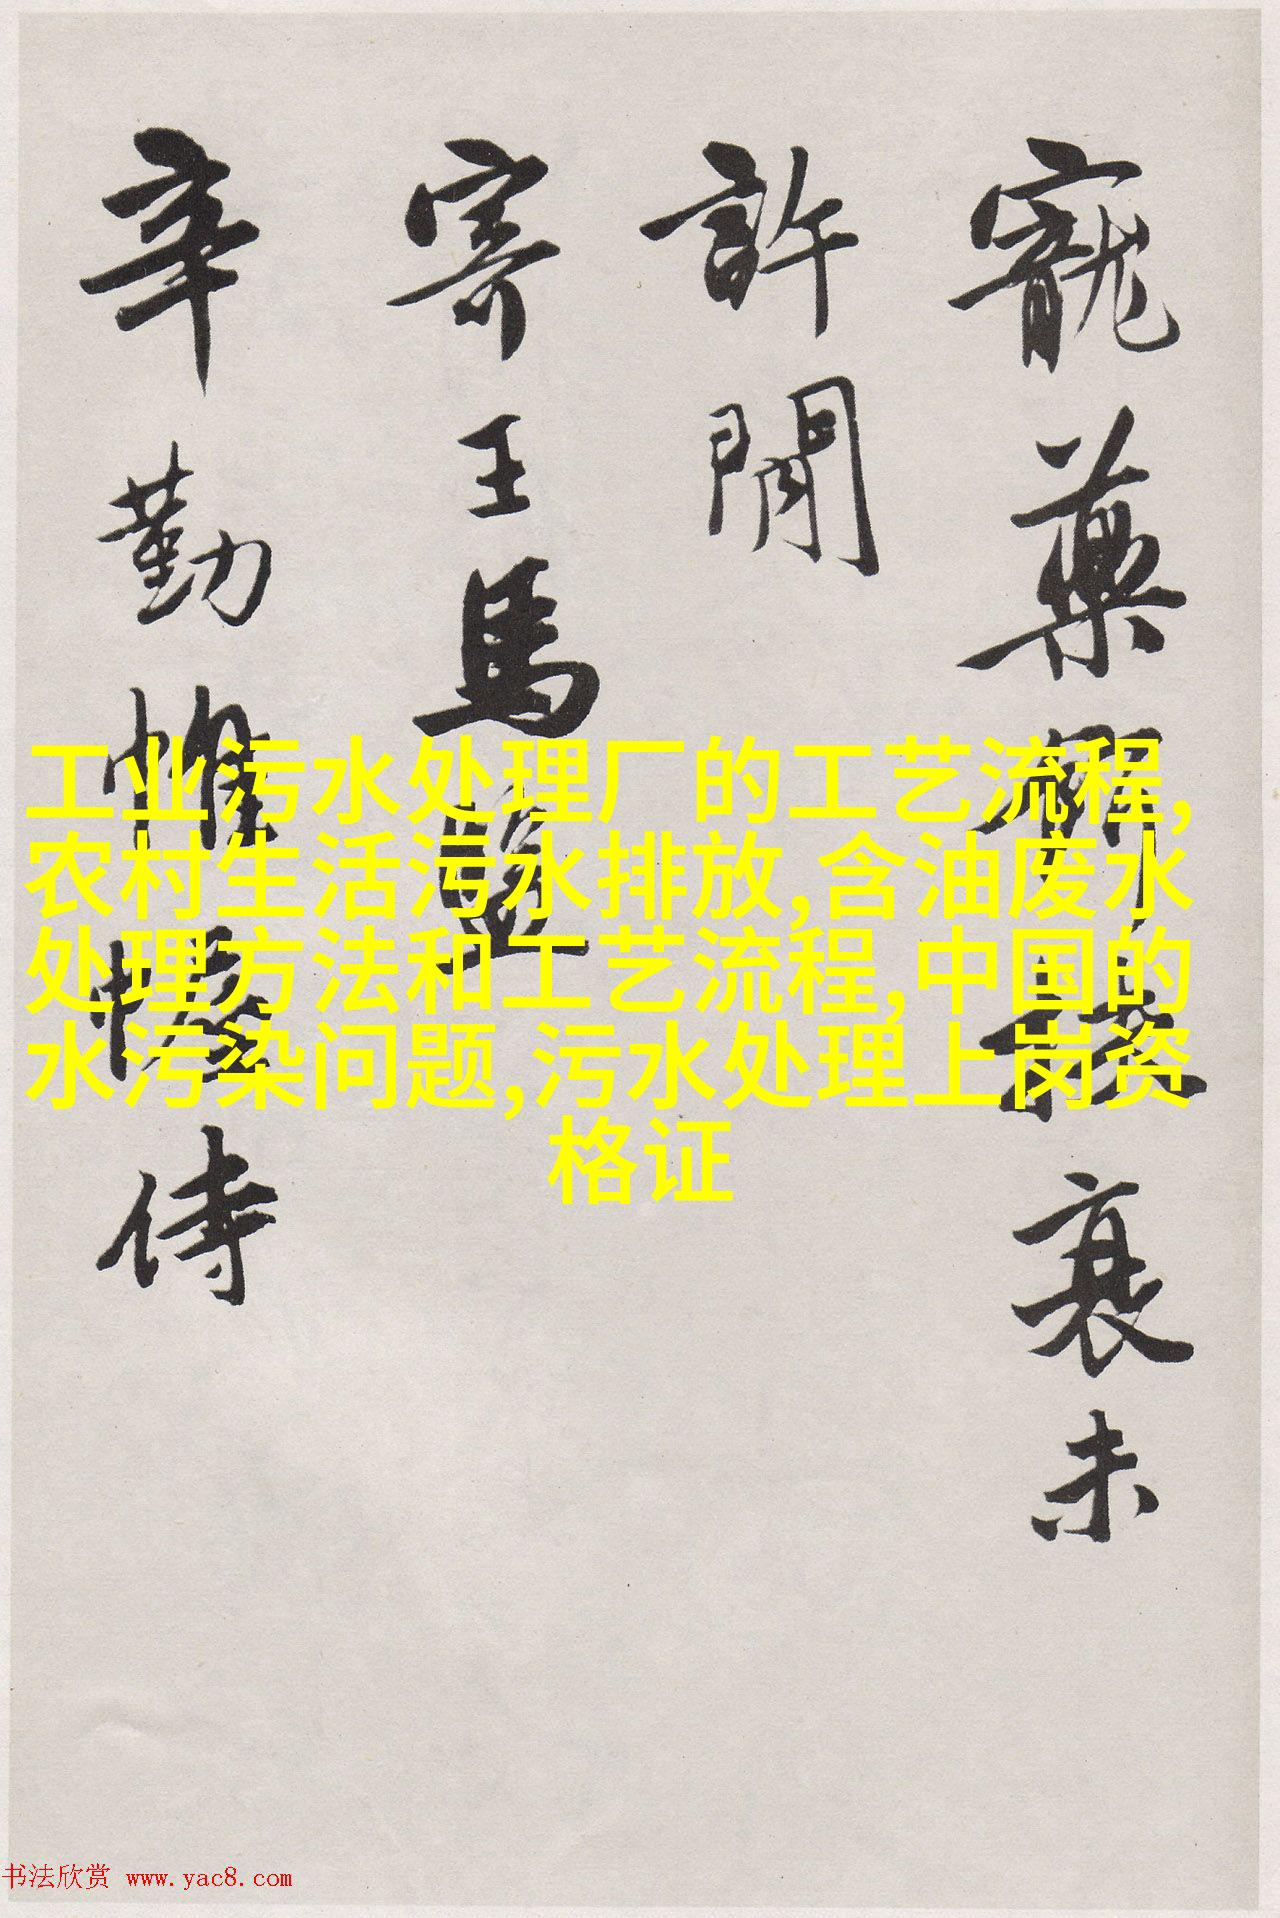 寵藥聊扶衰未
許閒
寄王馬監
辛勤帷幄侍
工业污水处理厂的工艺流程,
农村生活污水排放,含油废水
处理方法和工艺流程,中国的
水污染问题,污水处理上岗资
格证
书法欣赏 www.yac8.com